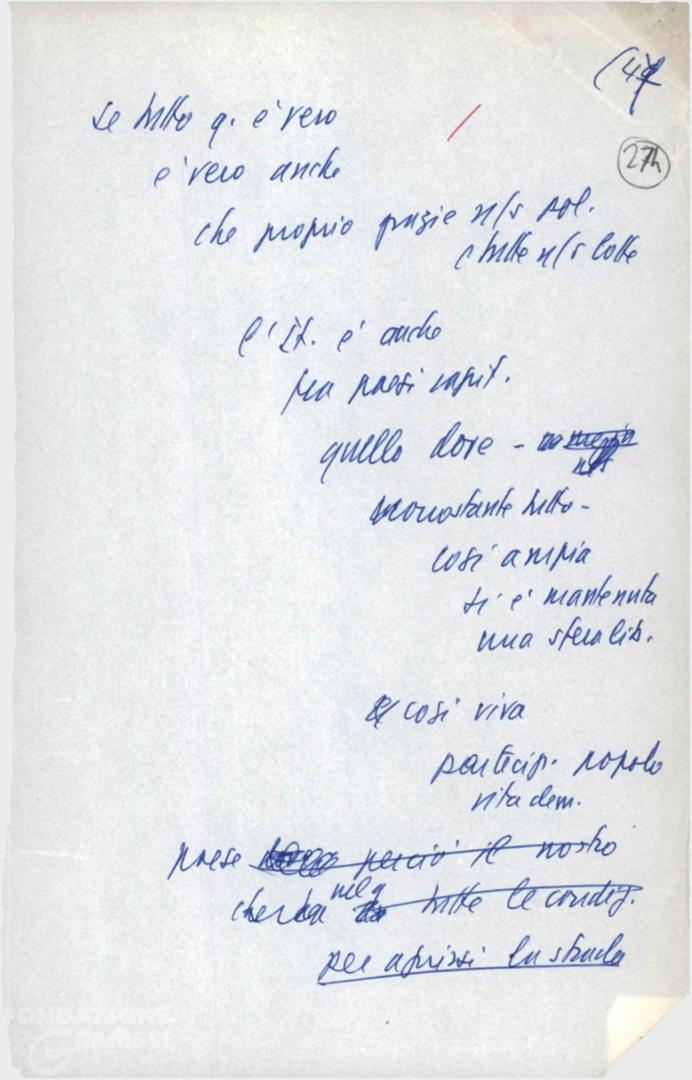 (49
27h
se tutto q. è vero
è vero anche
che proprio grazie n/s pol.
e tutte n/s lotte
l'It. è anche
fra paesi capit.
quello dove -
nonostante tutto -
così ampia
si è mantenuta
una sfera lib.
e così viva
partecip. popolo
vita dem.
paese perciò il nostro
che ha tutte le condiz.
per aprirsi la strada
FONDAZIONE
GRAMSCI